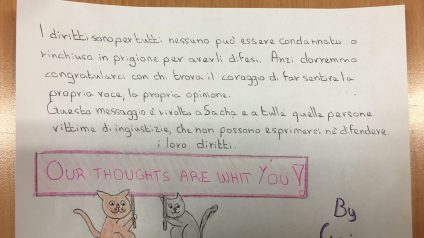 I diritti sono per tutti nessuno può essere condannato o
rinchiuso in prigione per averli difesi. Anzi dovremmo
congratularci con chi trova il coraggio di far sentire la
propria voce, la propria opinione.
Questo messaggio è rivolto a Sacha e a tutte quelle persone
vittime di ingiustizie, che non possono esprimersi nè difendere
i loro diritti.
OUR THOUGHTS ARE WHIT YOU!
By